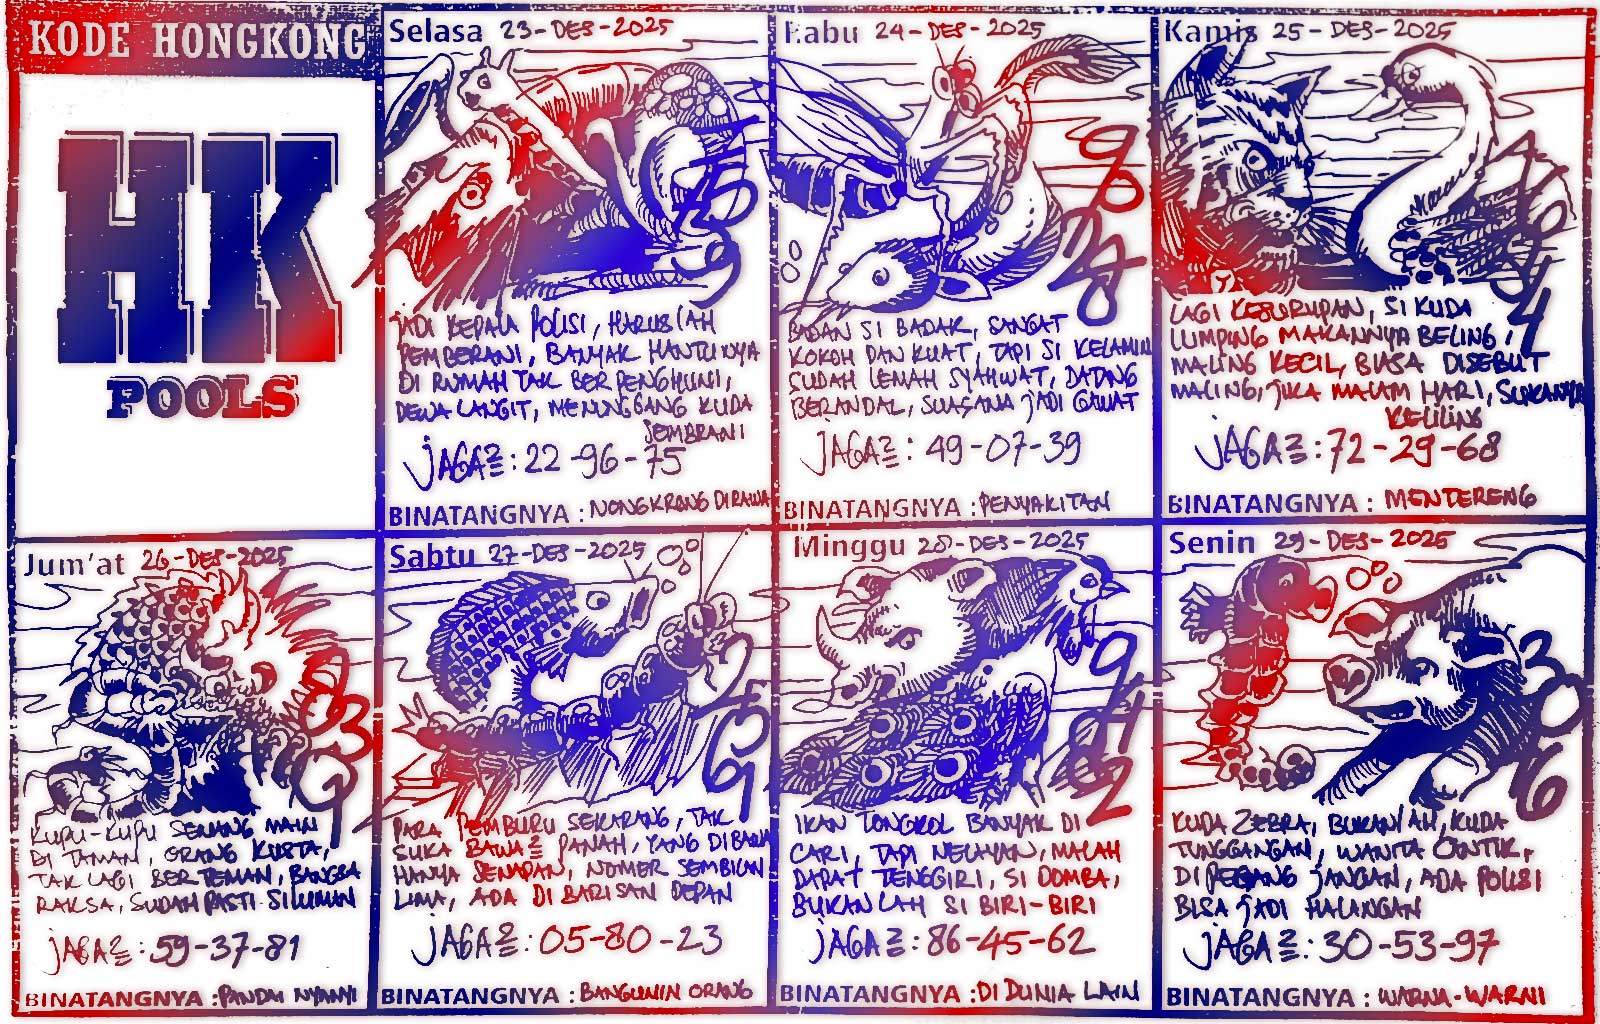 KODE HONGKONG
HK
POOLS
Selasa 23-DES-2025
7
5
9
JADI KEPALA POLISI, HARUSLAH
PEMBERANI, BANYAK HANTUNYA
DI RUMAH TAK BERPENGHUNI,
DEWA LANGIT, MENUNGGANG KUDA
SEMBRANI
JAGA2: 22-96-75
BINATANGNYA : NONGKRONG DIRAWA
Rabu 24-DES-2025
9
0
2
7
8
BADAN SI BADAK, SANGAT
KOKOH DAN KUAT, TAPI SI KELAMIN
SUDAH LEMAH SYAHWAT, DATANG
BERANDAL, SUASANA JADI GAWAT
JAGA2: 49-07-39
BINATANGNYA : PENYAKITAN
Kamis 25-DES-2025
4
LAGI KESURUPAN, SI KUDA
LUMPING MAKANNYA BELING,
MALING KECIL, BIASA DISEBUT
MALING, JIKA MALAM HARI, SUKANYA
KELILING
JAGA2: 72-29-68
BINATANGNYA : MENTERENG
Jum'at 26-DES-2025
0
3
9
KUPU-KUPU SENANG MAIN
DI TAMAN, ORANG KUSTA,
TAK LAGI BERTEMAN, BANGSA
RAKSA, SUDAH PASTI SILUMAN
JAGA2: 59-37-81
BINATANGNYA : PANDAI NYANYI
Sabtu 27-DES-2025
2
5
6
1
PARA PEMBURU SEKARANG, TAK
SUKA BAWA2 PANAH, YANG DIBAWA
HANYA SENAPAN, NOMER SEMBILAN
LIMA, ADA DI BARISAN DEPAN
JAGA2: 05-80-23
BINATANGNYA : BANGUNIN ORANG
Minggu 28-DES-2025
9
4
2
IKAN TONGKOL BANYAK DI
CARI, TAPI NELAYAN, MALAH
DAPAT TENGGIRI, SI DOMBA,
BUKANLAH SI BIRI-BIRI
JAGA2: 86-45-62
BINATANGNYA : DI DUNIA LAIN
Senin 29-DES-2025
3
0
6
KUDA ZEBRA, BUKANLAH, KUDA
TUNGGANGAN, WANITA CANTIK,
DI PEGANG JANGAN, ADA POLISI
BISA JADI HALANGAN
JAGA2: 30-53-97
BINATANGNYA : WARNA-WARNI